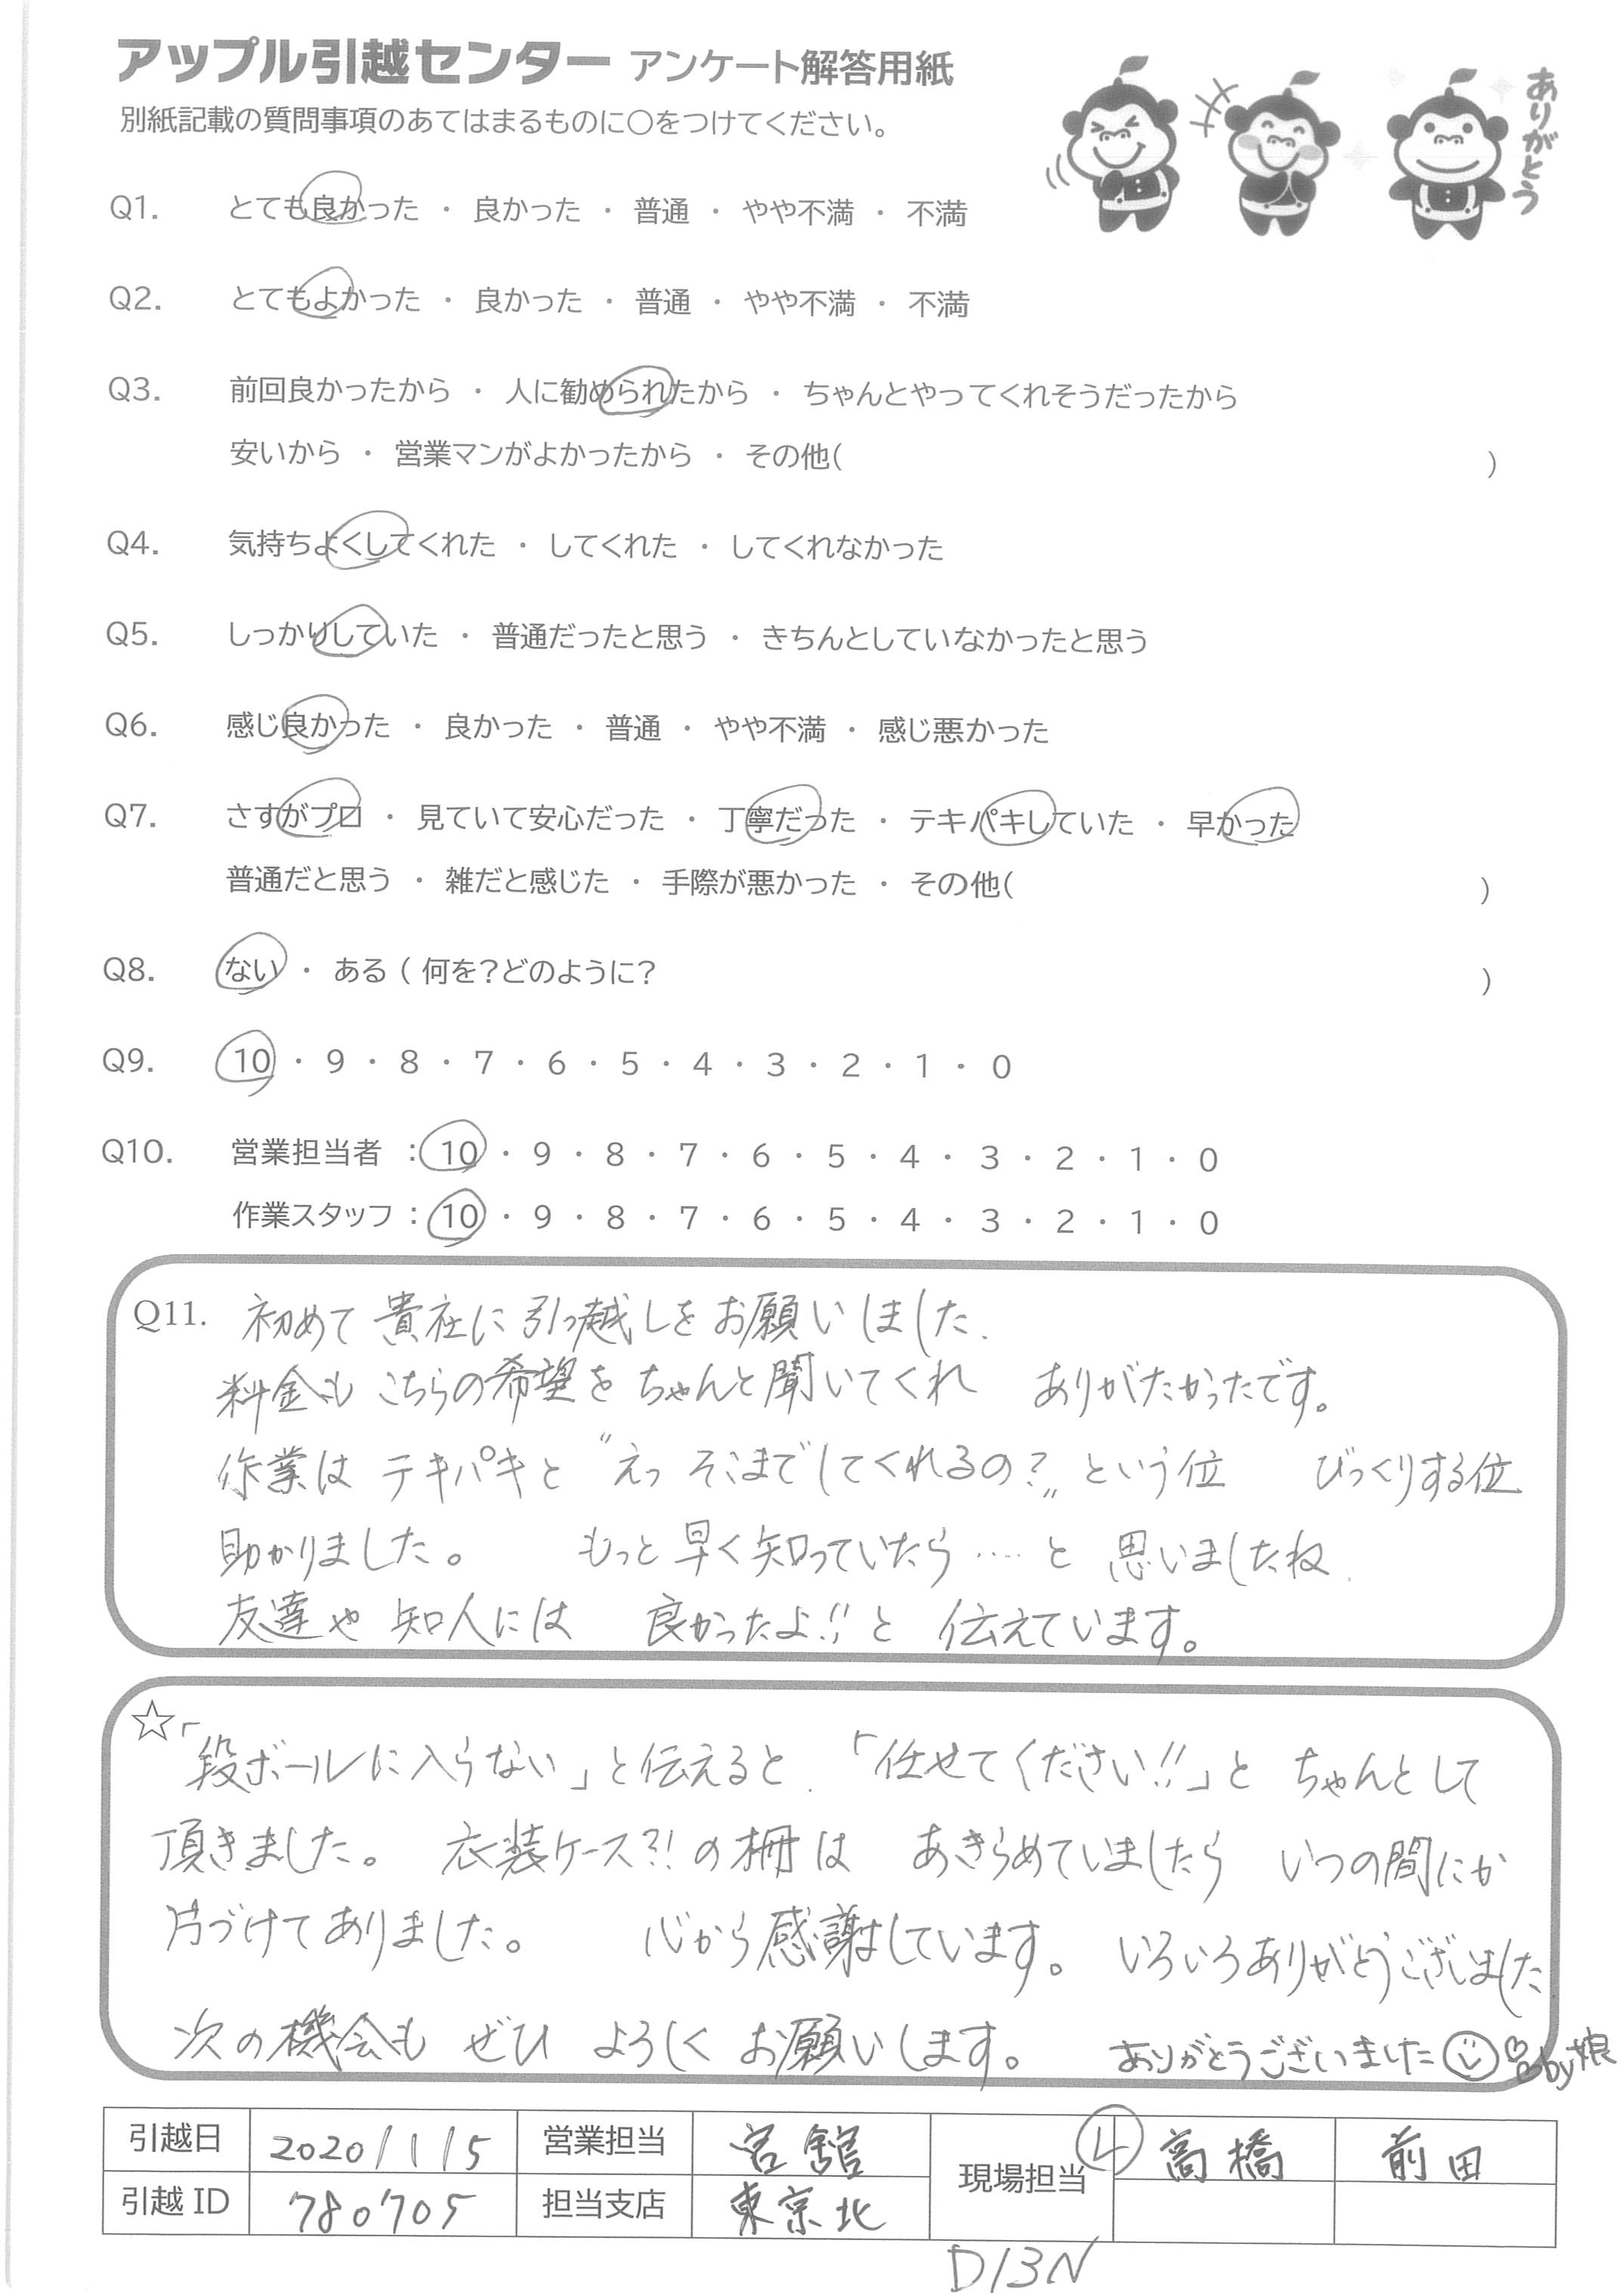 アップル引越センター アンケート解答用紙
別紙記載の質問事項のあてはまるものに○をつけてください。
ありがとう
Q1. とても良かった ・ 良かった ・ 普通 ・ やや不満 ・ 不満
Q2. とてもよかった ・ 良かった ・ 普通 ・ やや不満 ・ 不満
Q3. 前回良かったから ・ 人に勧められたから ・ ちゃんとやってくれそうだったから
安いから ・ 営業マンがよかったから ・ その他( )
Q4. 気持ちよくしてくれた ・ してくれた ・ してくれなかった
Q5. しっかりしていた ・ 普通だったと思う ・ きちんとしていなかったと思う
Q6. 感じ良かった ・ 良かった ・ 普通 ・ やや不満 ・ 感じ悪かった
Q7. さすがプロ ・ 見ていて安心だった ・ 丁寧だった ・ テキパキしていた ・ 早かった
普通だと思う ・ 雑だと感じた ・ 手際が悪かった ・ その他( )
Q8. ない ・ ある ( 何を?どのように? )
Q9. 10 ・ 9 ・ 8 ・ 7 ・ 6 ・ 5 ・ 4 ・ 3 ・ 2 ・ 1 ・ 0
Q10. 営業担当者 : 10 ・ 9 ・ 8 ・ 7 ・ 6 ・ 5 ・ 4 ・ 3 ・ 2 ・ 1 ・ 0
作業スタッフ : 10 ・ 9 ・ 8 ・ 7 ・ 6 ・ 5 ・ 4 ・ 3 ・ 2 ・ 1 ・ 0
Q11. 初めて貴社に引っ越しをお願いしました.
料金も こちらの希望を ちゃんと聞いてくれ ありがたかったです。
作業は テキパキと "えっ そこまでしてくれるの?" という位 びっくりする位
助かりました。 もっと早く知っていたら…. と 思いましたね.
友達や 知人には 良かったよ!! と 伝えています。
☆「段ボールに入らない」と伝えると.「任せてください!!」と ちゃんとして
頂きました。 衣装ケース?! の棚は あきらめていましたら いつの間にか
片づけてありました。 心から感謝しています。 いろいろありがとうございました
次の機会も ぜひ よろしく お願いします。 ありがとうございました☺♡♡by娘
引越日 2020/1/15 営業担当 宮舘 現場担当 Ⓛ 高橋 前田
引越ID 780705 担当支店 東京北
D13N